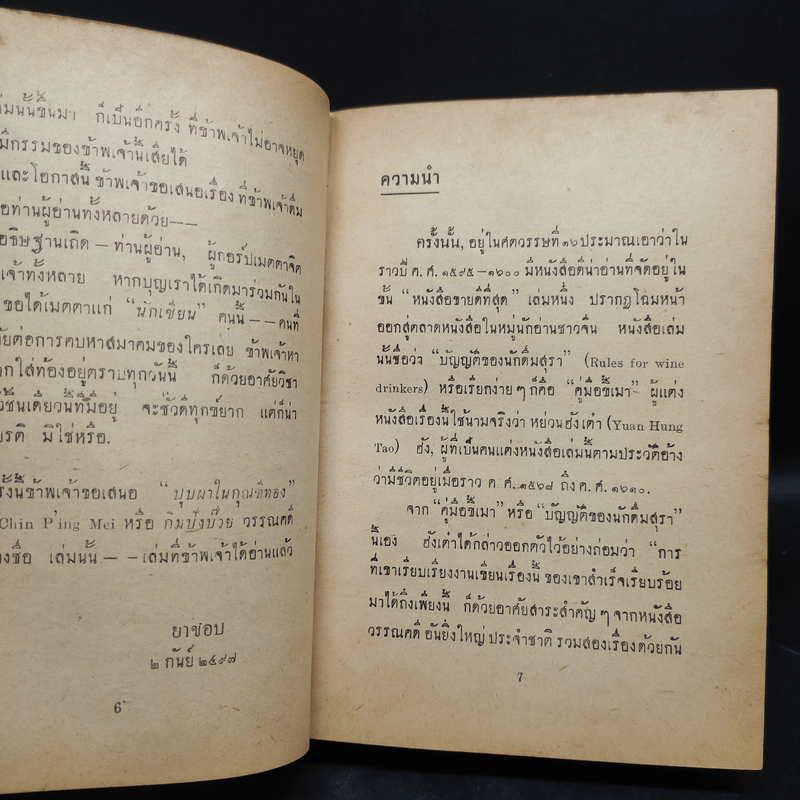 ล่มนั้นขึ้นมา ก็เป็นอีกครั้ง ที่ข้าพเจ้าไม่อาจหยุด
มีกรรมของข้าพเจ้านี้เสียได้
และโอกาสนี้ ข้าพเจ้าขอเสนอเรื่อง ที่ข้าพเจ้าดื่ม
อท่านผู้อ่านทั้งหลายด้วย——
อธิษฐานเถิด — ท่านผู้อ่าน, ผู้กอร์ปเมตตาจิต
เจ้าทั้งหลาย หากบุญเราได้เกิดมาร่วมกันใน
ขอได้เมตตาแก่ “นักเขียน” คนนี้——คนที่
ัยต่อการคบหาสมาคมของใครเลย ข้าพเจ้าหา
วกใส่ท้องอยู่ตราบทุกวันนี้ ก็ด้วยอาศัยวิชา
วชิ้นเดียวนี้ที่มีอยู่ จะชั่วดีทุกข์ยาก แต่ก็น่า
ยรติ มิใช่หรือ.
รั้งนี้ข้าพเจ้าขอเสนอ “บุบผาในกุณฑีทอง”
Chin P'ing Mei หรือ กิมปังบ๊วย วรรณคดี
งชื่อ เล่มนั้น——เล่มที่ข้าพเจ้าได้อ่านแล้ว
ยาขอบ
๒ กันย์ ๒๔๙๗
6
ความนำ
ครั้งนั้น, อยู่ในศตวรรษที่ ๑๖ ประมาณเอาว่าใน
ราวปี ค. ศ. ๑๕๙๕–๑๖๐๐ มีหนังสือดีน่าอ่านที่จัดอยู่ใน
ชั้น “หนังสือขายดีที่สุด” เล่มหนึ่ง ปรากฏโฉมหน้า
ออกสู่ตลาดหนังสือในหมู่นักอ่านชาวจีน หนังสือเล่ม
นั้นชื่อว่า “บัญญัติของนักดื่มสุรา” (Rules for wine
drinkers) หรือเรียกง่าย ๆ ก็คือ “คู่มือขี้เมา” ผู้แต่ง
หนังสือเรื่องนี้ใช้นามจริงว่า หย่วนฮังเต๋า (Yuan Hung
Tao) ฮัง, ผู้ที่เป็นคนแต่งหนังสือเล่มนี้ตามประวัติอ้าง
ว่ามีชีวิตอยู่เมื่อราว ค. ศ. ๑๕๖๘ ถึง ค. ศ. ๑๖๑๐.
จาก “คู่มือขี้เมา” หรือ “บัญญัติของนักดื่มสุรา”
นี้เอง ฮังเต๋าได้กล่าวออกตัวไว้อย่างถ่อมว่า “การ
ที่เขาเรียบเรียงงานเขียนเรื่องนี้ ของเขาสำเร็จเรียบร้อย
มาได้ถึงเพียงนี้ ก็ด้วยอาศัยสาระสำคัญ ๆ จากหนังสือ
วรรณคดี อันยิ่งใหญ่ ประจำชาติ รวมสองเรื่องด้วยกัน
7